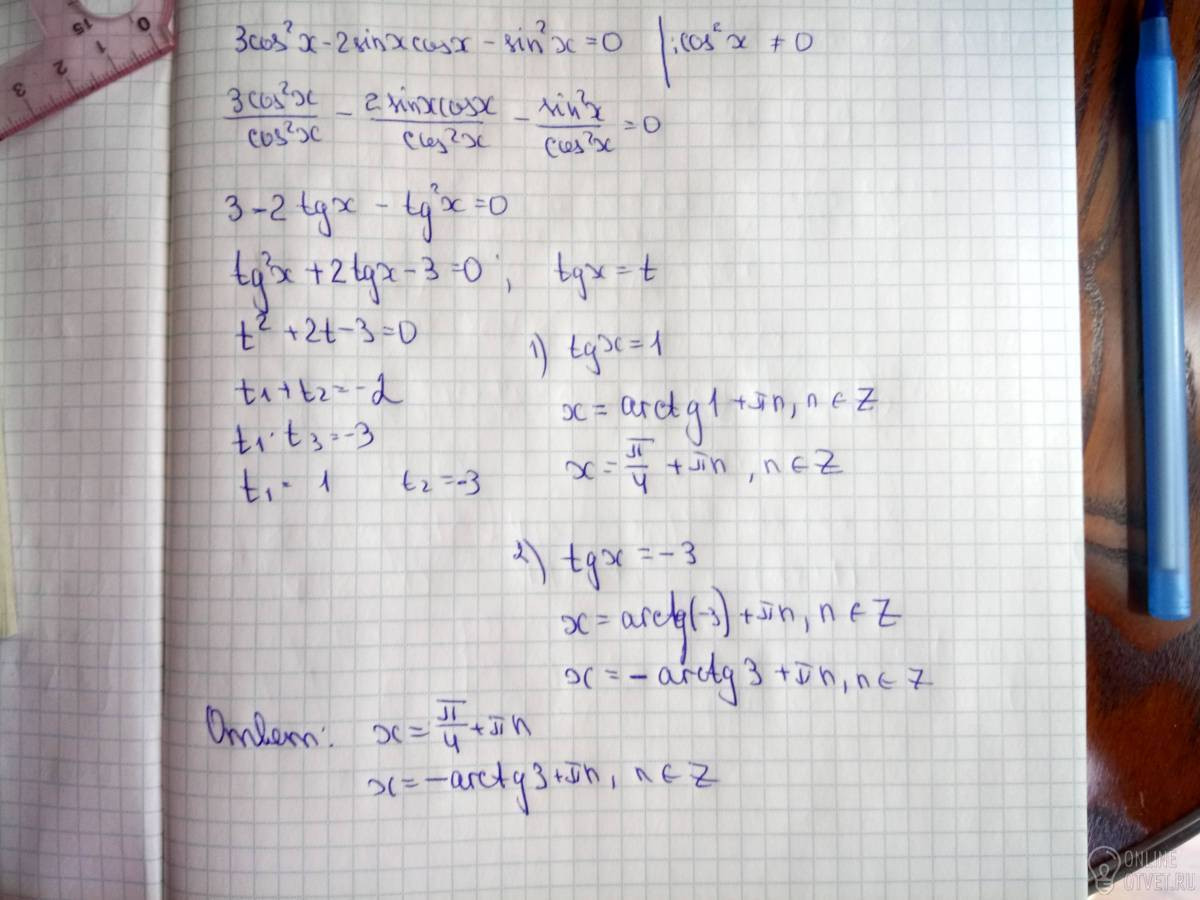 3cos²x - 2sinxcosx - sin²x = 0 | :cos²x ≠ 0
3cos²x/cos²x - 2sinxcosx/cos²x - sin²x/cos²x = 0
3 - 2tgx - tg²x = 0
tg²x + 2tgx - 3 = 0 ; tgx = t
t² + 2t - 3 = 0
t1 + t2 = -2
t1 · t3 = -3
t1 = 1 t2 = -3
1) tgx = 1
x = arctg1 + πn, n ∈ Z
x = π/4 + πn, n ∈ Z
2) tgx = -3
x = arctg(-3) + πn, n ∈ Z
x = - arctg3 + πn, n ∈ Z
Ответ: x = π/4 + πn
x = -arctg3 + πn, n ∈ Z
0 1 2 3
15
ONLINE
OTVET.RU